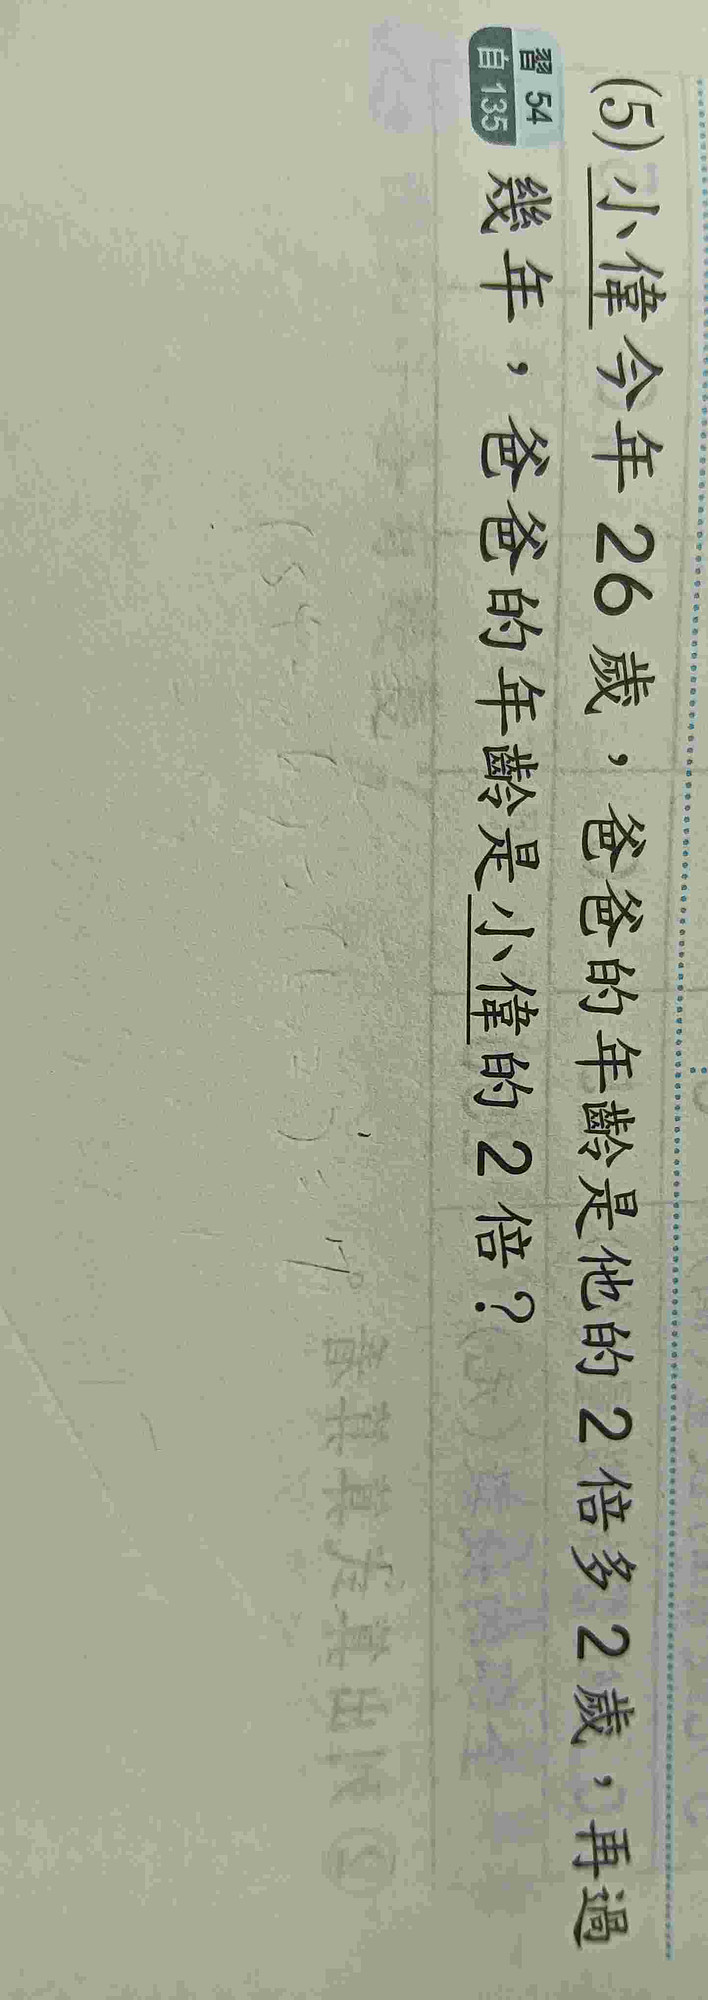 (5)小偉今年26歲，爸爸的年齡是他的2倍多2歲，再過
習 54
自 135
幾年，爸爸的年齡是小偉的2倍？